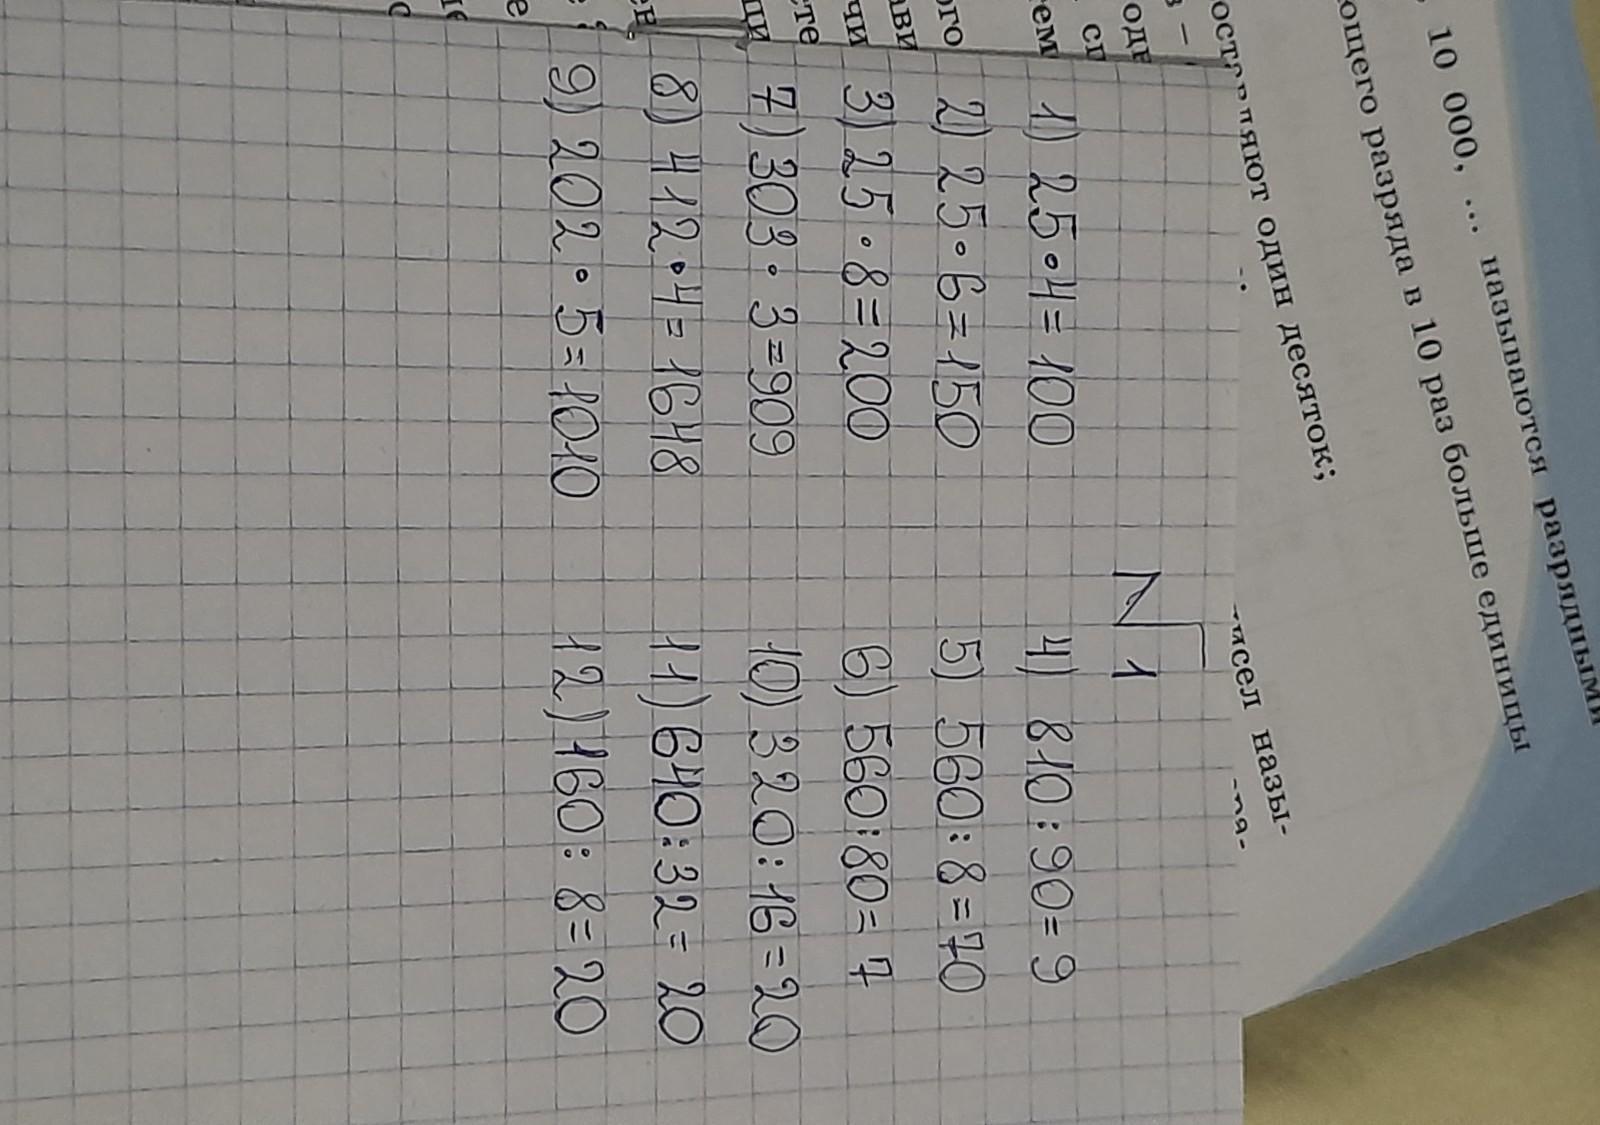 10 000, ... называются разрядными
ющего разряда в 10 раз больше единицы
один десяток;
назы-
№ 1
1) 25·4=100
2) 25·6=150
3) 25·8=200
7) 303·3=909
8) 412·4=1648
9) 202·5=1010
4) 810:90=9
5) 560:8=70
6) 560:80=7
10) 320:16=20
11) 640:32=20
12) 160:8=20